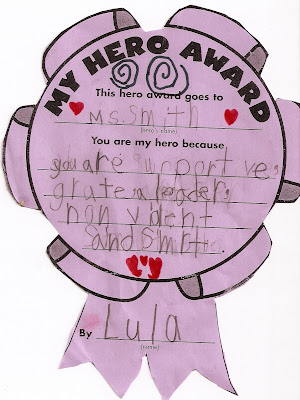 MY HERO AWARD
This hero award goes to
Ms. Smith
(hero's name)
You are my hero because
you are suportive,
grate leader,
non vident
and Smrt
By Lula
(name)